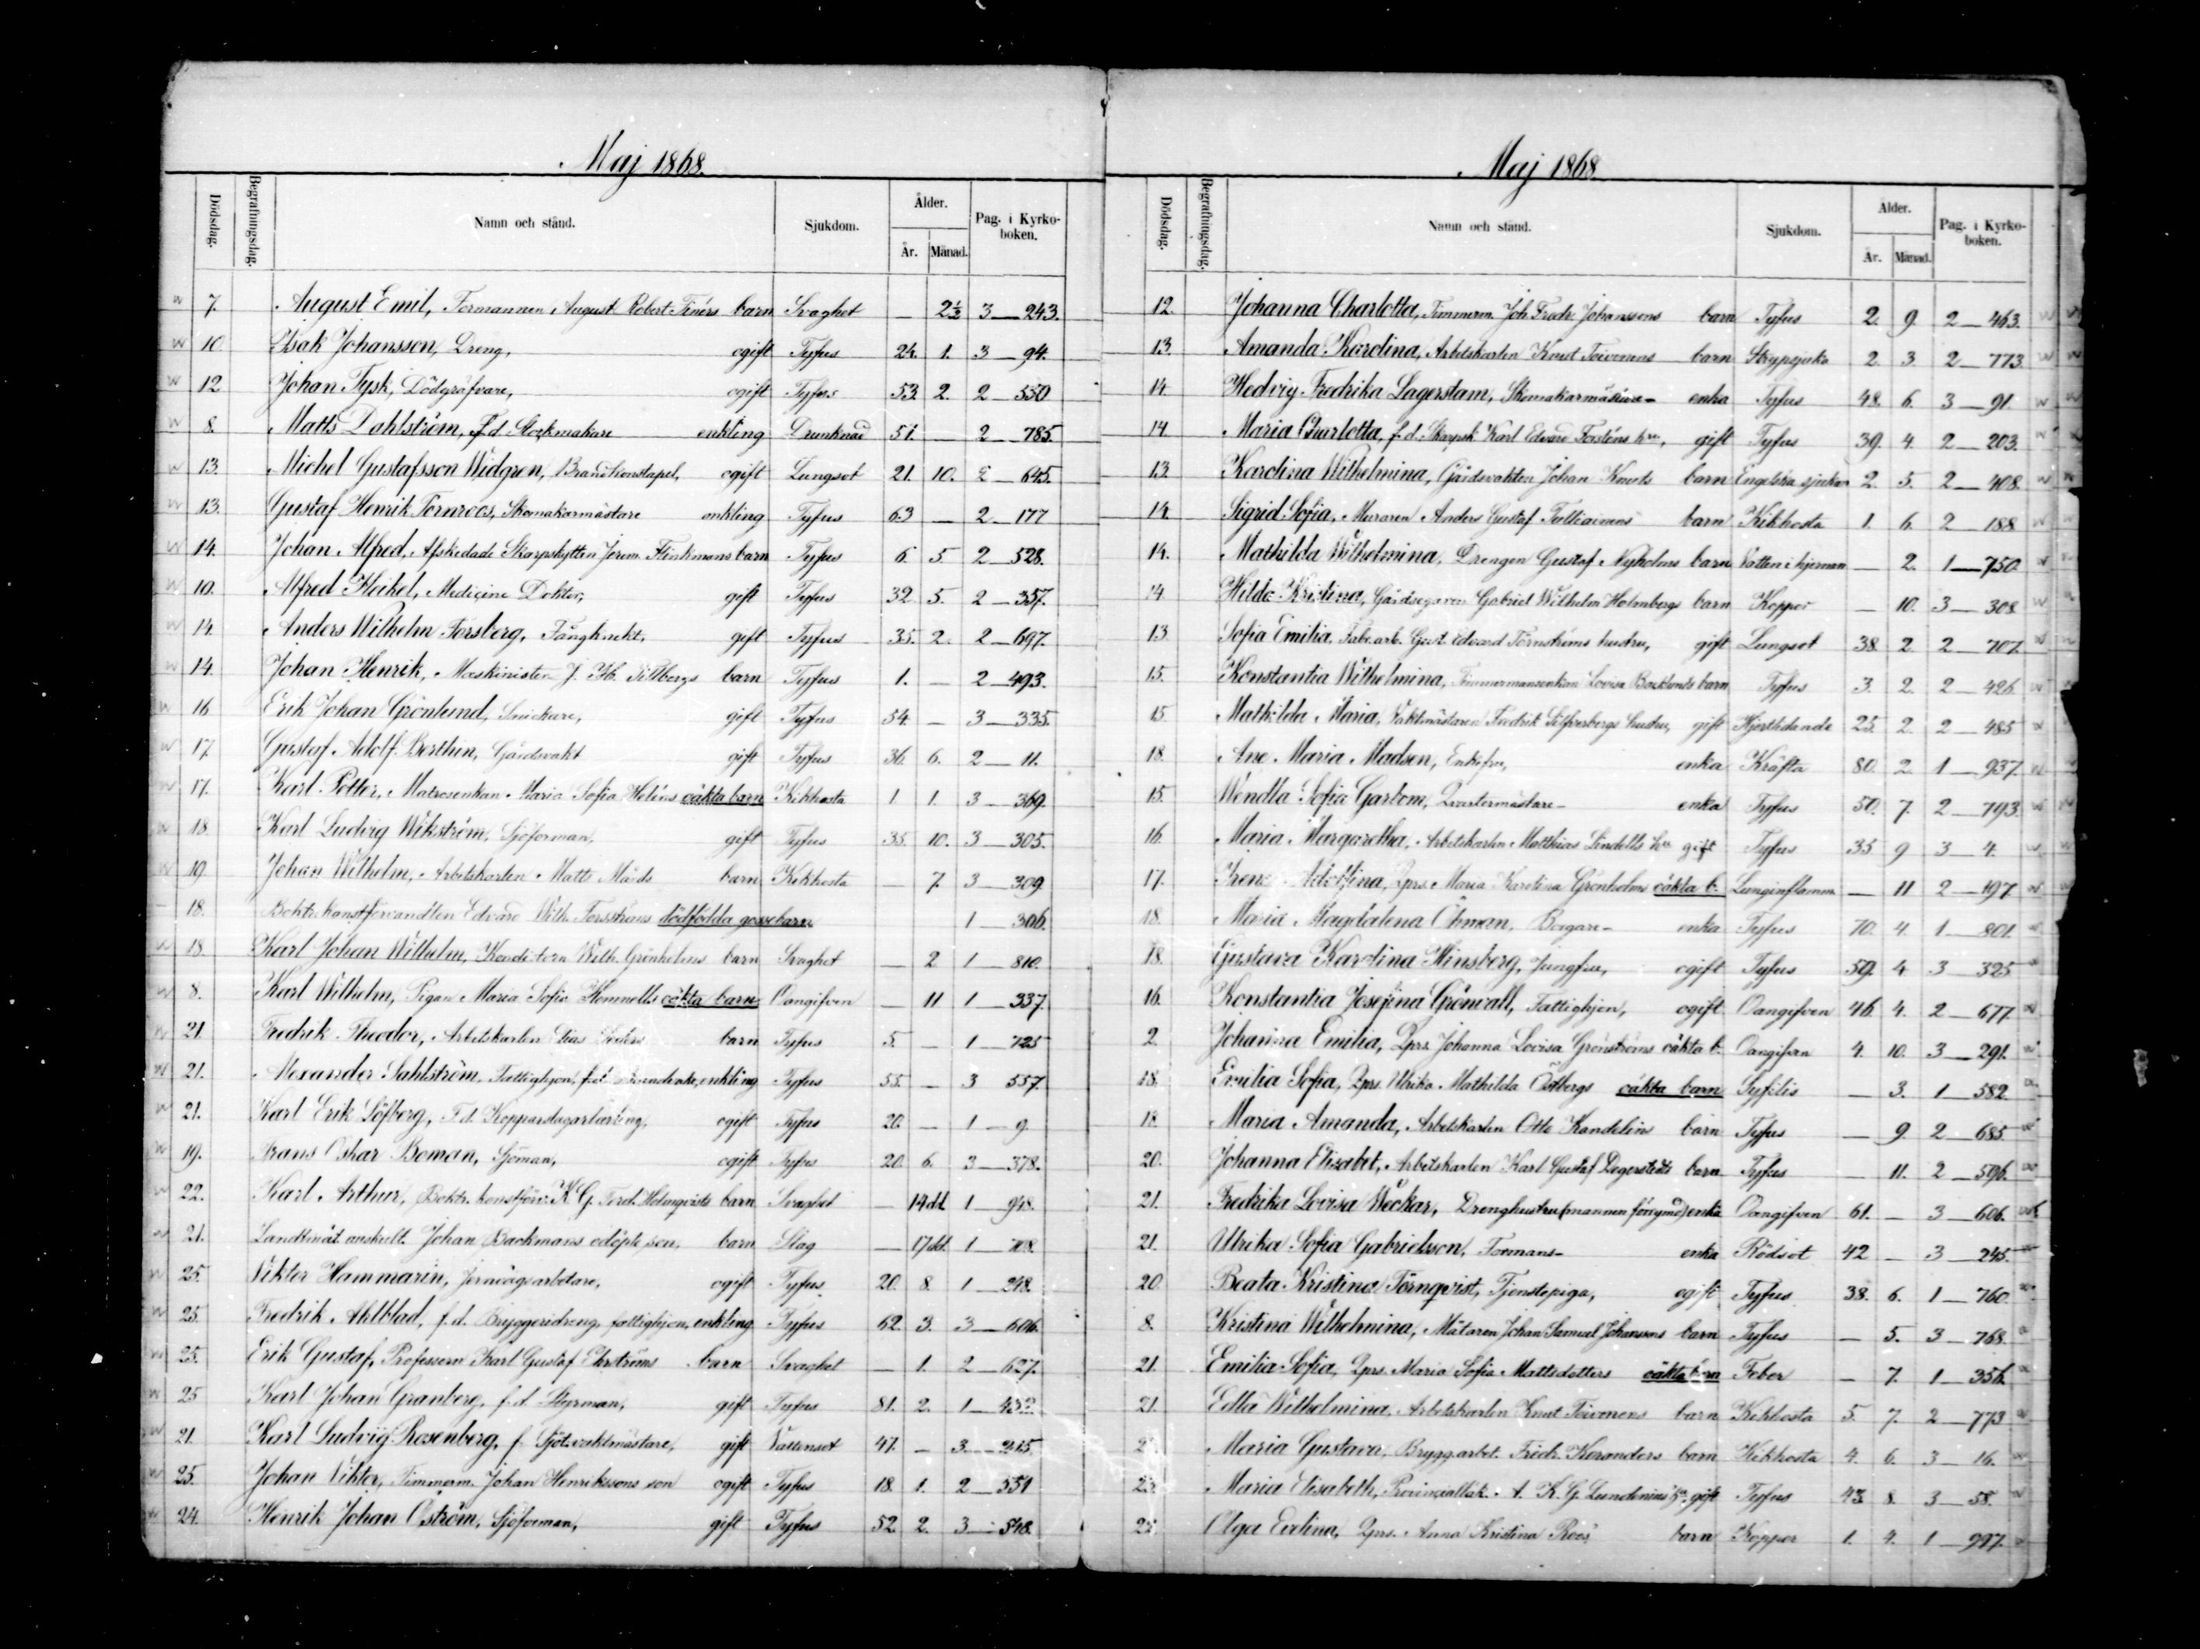 Maj 1868.
Dödsdag. Begrafningsdag. Namn och stånd. Sjukdom. Ålder. År. Månad. Pag. i Kyrko-boken.
7. August Emil, Formannen August Robert Finérs barn Svaghet — 2½ 3 — 243.
10. Isak Johansson, Dreng, ogift Tyfus 24. 1. 3 — 94.
12 Johan Tysk, Dödgräfvare, ogift Tyfus 53. 2. 2 — 550
8. Matts Dahlström, f.d. Stockmakare enkling Drunknad 51. — 2 — 785.
13. Michel Gustafsson Widgren, Brandkonstapel, ogift Lungsot 21. 10. 2 — 645.
13. Gustaf Henrik Törnroos, Skomakarmästare enkling Tyfus 63 — 2 — 177
14. Johan Alfred, Afskedade Skarpskytten Jerem. Flinkmans barn Tyfus 6. 5. 2 — 528.
10. Alfred Heikel, Medicine Doktor, gift Tyfus 32. 5. 2 — 357.
14. Anders Wilhelm Forsberg, Fångknekt, gift Tyfus 35. 2. 2 — 697.
14. Johan Henrik, Maskinisten J. Hb. Tillbergs barn Tyfus 1. — 2 — 493.
16 Erik Johan Grönlund, Snickare, gift Tyfus 54. — 3 — 335.
17. Gustaf Adolf Berthin, Gårdsvakt gift Tyfus 36. 6. 2 — 11.
17. Karl Petter, Matrosenkan Maria Sofia Heléns oäkta barn Kikhosta 1. 1. 3 — 369.
18. Karl Ludvig Wikström, Sjöforman, gift Tyfus 35. 10. 3 — 305.
19 Johan Wilhelm, Arbetskarlen Matts Mårds barn Kikhosta — 7. 3 — 309.
18. Boktr. konstförvandten Edvard Wilh. Forsströms dödfödda gossebarn 1 — 306.
18. Karl Johan Wilhelm, Konditorn Wilh. Grönholms barn Svaghet — 2 1 — 810.
8. Karl Wilhelm, Pigan Maria Sofia Hemnells oäkta barn Oangifven — 11 1 — 337.
21. Fredrik Theodor, Arbetskarlen Elias barn Tyfus 5. — 1 — 725
21. Alexander Sahlström, Fattighjon, enkling Tyfus 55. — 3 557.
21. Karl Erik Löfberg, F.d. Kopparslagarlärling, ogift Tyfus 20. — 1 — 9.
19. Frans Oskar Boman, Sjöman, ogift Tyfus 20. 6. 3 — 378.
22. Karl Arthur, Boktr. konstförv. K.G. Ferd. Holmqvists barn Svaghet — 14 dd. 1 — 948.
21. Landtmät. auskult. Johan Backmans odöpte son, barn Slag — 17 dd. 1 — 708.
25. Viktor Hammarin, Jernvägsarbetare, ogift Tyfus 20. 8. 1 — 248.
25. Fredrik Ahlblad, f.d. Bryggeridreng, fattighjon, enkling Tyfus 62. 3. 3 — 606.
25. Erik Gustaf, Professorn Karl Gustaf Ehrströms barn Svaghet — 1. 2 — 627.
25 Karl Johan Granberg, f.d. Styrman, gift Tyfus 81. 2. 1 —
21. Karl Ludvig Rosenberg, f. Sjötvaktmästare, gift Vattensot 47. — 3. — 215.
25. Johan Viktor, Timmerm. Johan Henrikssons son ogift Tyfus 18. 1. 2 — 551
24. Henrik Johan Öström, Sjöforman, gift Tyfus 52. 2. 3 — 548.
Maj 1868
Dödsdag. Begrafningsdag. Namn och stånd. Sjukdom. Ålder. År. Månad. Pag. i Kyrko-boken.
12. Johanna Charlotta, Timmerm. Joh. Fredr. Johanssons barn Tyfus 2. 9. 2 — 463.
13. Amanda Karolina, Arbetskarlen Knut Toivonens barn Strypsjuka 2. 3. 2 — 773.
14. Hedvig Fredrika Lagerstam, Skomakarmästare- enka Tyfus 48. 6. 3 — 91.
14. Maria Charlotta, f.d. Skarpsk. Karl Edvard Forsténs hru, gift Tyfus 39. 4. 2 — 203.
13. Karolina Wilhelmina, Gårdsvakten Johan Knuts barn Engelska sjukan 2. 5. 2 — 408.
14. Sigrid Sofia, Muraren Anders Gustaf barn Kikhosta 1. 6. 2 188
14. Mathilda Wilhelmina, Drengen Gustaf Nyholms barn Vatten i hjernan — 2. 1 — 750.
14 Hilda Kristina, Gårdsegaren Gabriel Wilhelm Holmbergs barn Koppor — 10. 3 — 308
13. Sofia Emilia, Fabr.arb. Gust. Edvard Törnströms hustru, gift Lungsot 38. 2. 2 — 707.
15. Konstantia Wilhelmina, Timmermansenkan Lovisa Backlunds barn Tyfus 3. 2. 2 — 426.
15. Mathilda Maria, Vaktmästaren Fredrik Silfverbergs hustru, gift Hjertlidande 25. 2. 2 — 485
18. Ane Maria Madsen, Enkefru, enka Kräfta 80. 2. 1 — 937.
15. Wendla Sofia Garbom, Qvartermästare- enka Tyfus 50. 7. 2 — 793.
16. Maria Margaretha, Arbetskarlen Matthias Lindells hru gift Tyfus 35 9 3 — 4.
17. Irene Adolfina, Qprs. Maria Karolina Grönholms oäkta b. Lunginflamm. — 11 2 — 197
18. Maria Magdalena Öhman, Bagare- enka Tyfus 70. 4. 1 — 801.
18. Gustava Karolina Hinsberg, Jungfru, ogift Tyfus 59. 4 3 — 325
16. Konstantia Josefina Grönvall, Fattighjon, ogift Oangifven 46. 4. 2 — 677.
2. Johanna Emilia, Qprs. Johanna Lovisa Grönströms oäkta b. Oangifven 4. 10. 3 — 291.
18. Emilia Sofia, Qprs. Ulrika Mathilda Östbergs oäkta barn Syfilis — 3. 1 — 582
18. Maria Amanda, Arbetskarlen Otto Kandelins barn Tyfus — 9. 2 — 685.
20. Johanna Elisabet, Arbetskarlen Karl Gustaf Lagerstedts barn Tyfus — 11. 2 — 596.
21. Fredrika Lovisa Weckar, Drenghustru (mannen försvund) enka Oangifven 61. — 3 — 606.
21. Ulrika Sofia Gabrielsson, Formans- enka Rödsot 42 — 3 — 245.
20 Beata Kristina Törnqvist, Tjenstepiga, ogift Tyfus 38. 6. 1 — 760.
8. Kristina Wilhelmina, Mätaren Johan Samuel Johanssons barn Tyfus — 5. 3 — 768.
21. Emilia Sofia, Qprs. Maria Sofia Mattsdotters oäkta barn Feber — 7. 1 — 356.
21. Edla Wilhelmina, Arbetskarlen Knut Toivonens barn Kikhosta 5. 7. 2 — 773
Maria Gustava, Bryggarbet. Fredr. Koranders barn Kikhosta 4. 6. 3 — 16.
23. Maria Elisabeth, Provincialläk. A. K. G. Lundenius hru, gift Tyfus 43. 8. 3 — 58.
25. Olga Evelina, Qprs. Anna Kristina Roos barn Koppor 1. 4. 1 — 997.